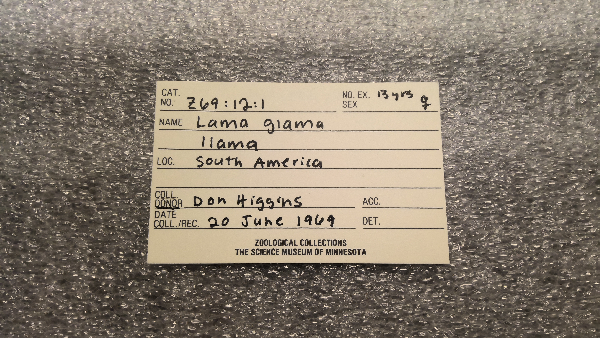 CAT. NO. Z69:12:1 NO. EX. 13 yrs SEX ♀
NAME Lama glama
llama
LOC. South America
COLL. DONOR Don Higgins ACC.
DATE COLL./REC. 20 June 1969 DET.
ZOOLOGICAL COLLECTIONS
THE SCIENCE MUSEUM OF MINNESOTA